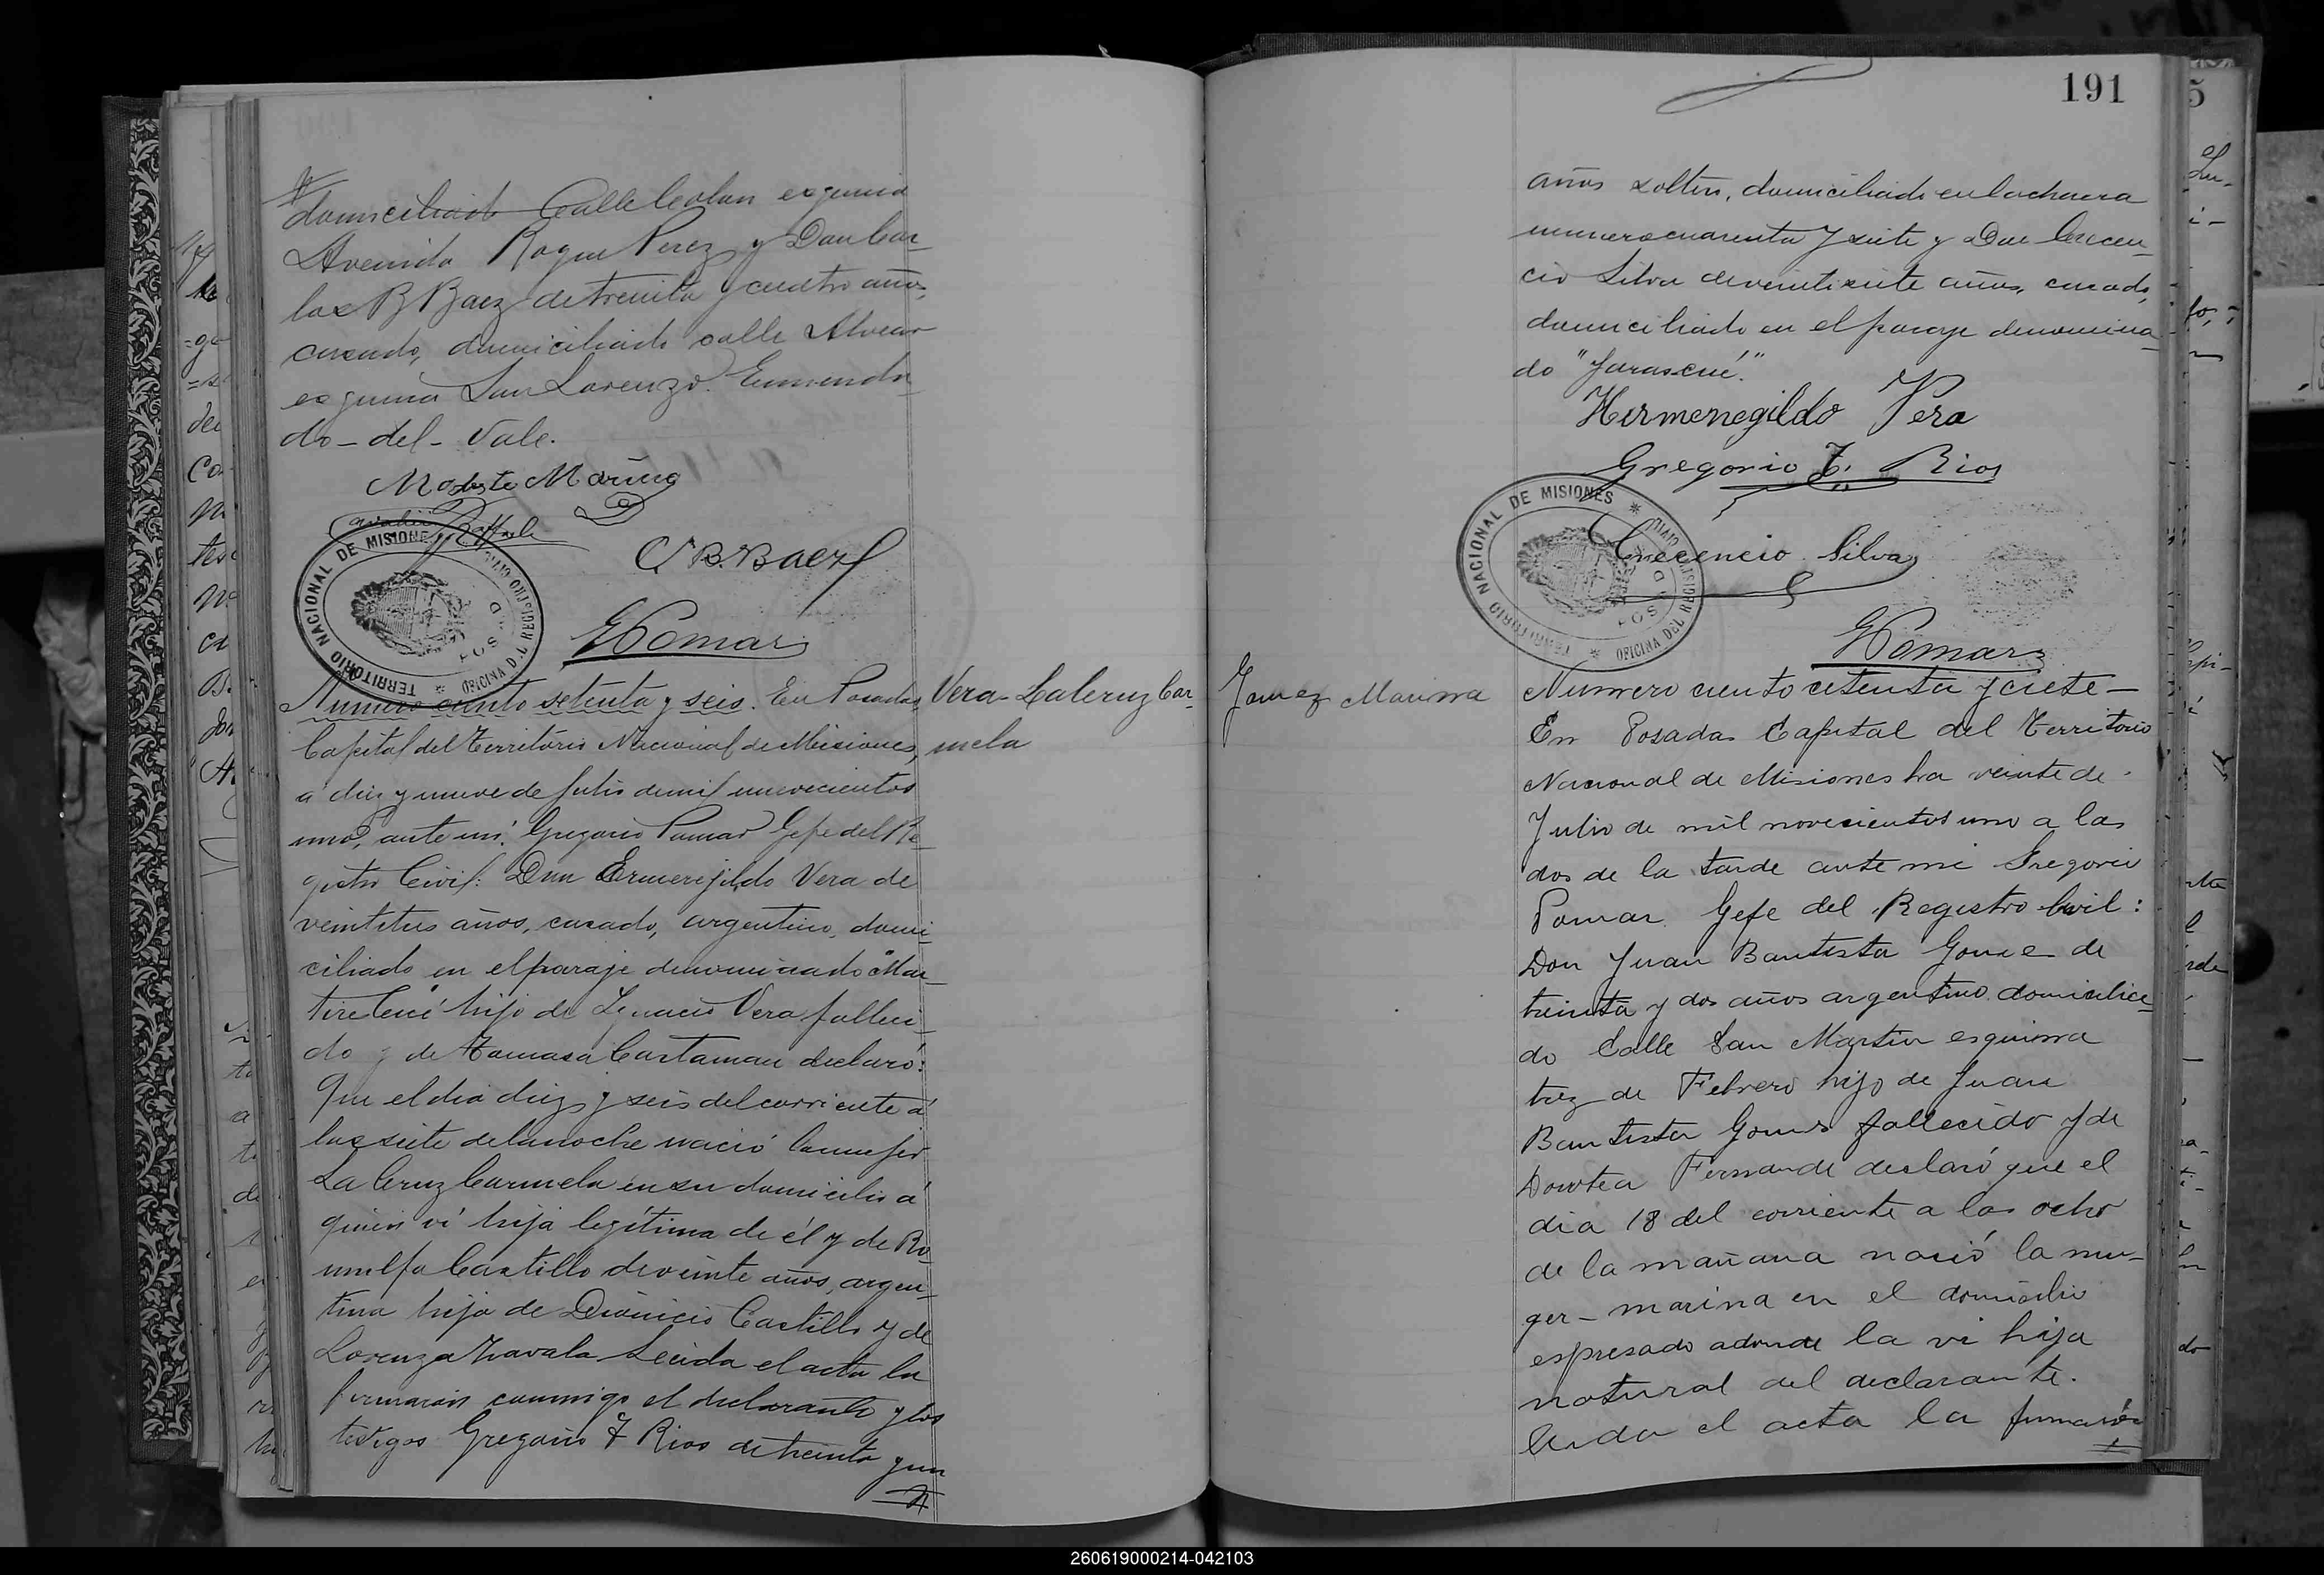 domiciliado Calle Colon esquina
Avenida Roque Perez y Don Car-
los B Baez de treinta y cuatro años,
casado, domiciliado calle Alvear
esquina San Lorenzo. Enmenda-
do - del - Vale.
Modesto Mariño
C. B. Baez
GPomar
TERRITORIO NACIONAL DE MISIONES * OFICINA DEL REGISTRO CIVIL *
POSADAS
Vera - La Cruz Car-
mela
Numero ciento setenta y seis. En Posadas,
Capital del Territorio Nacional de Misiones,
a diez y nueve de Julio de mil novecientos
uno, ante mi: Gregorio Pomar Gefe del Re-
gistro Civil: Don Ermerejildo Vera de
veintitres años, casado, argentino, domi-
ciliado en el paraje denominado "Mar-
tires Cué" hijo de Ignacio Vera falleci-
do y de Tomasa Castaman declaró:
Que el dia diez y seis del corriente á
las siete de la noche nació la mujer
La Cruz Carmela en su domicilio á
quien ví hija legítima de él y de Ro-
mulfa Castillo de veinte años, argen-
tina hija de Dionicio Castillo y de
Lorenza Zavala Leida el acta la
firmaron conmigo el declarante y los
testigos Gregorio F Rios de treinta y un
191
años soltero, domiciliado en la chacra
numero cuarenta y siete y Don Crecen-
cio Silva de veintisiete años, casado,
domiciliado en el paraje denomina-
do "Jarascué."
Hermenegildo Vera
Gregorio F. Rios
Crecencio Silva
GPomar
TERRITORIO NACIONAL DE MISIONES * OFICINA DEL REGISTRO CIVIL *
POSADAS
Gomez Marina
Numero ciento cetenta y ciete -
En Posadas Capital del Territorio
Nacional de Misiones ha veinte de
Julio de mil novecientos uno a las
dos de la tarde ante mi Gregorio
Pomar Gefe del Registro Civil:
Don Juan Bautista Gome de
treinta y dos años argentino domicilia-
do Calle San Martin esquina
trez de Febrero hijo de Juan
Bautista Gomes fallecido y de
Dorotea Fernande declaró que el
dia 18 del corriente a las ocho
de la mañana nació la mu-
ger - marina en el domicilio
espresado adonde la vi hija
natural del declarante.
leida el acta la firmarón
260619000214-042103